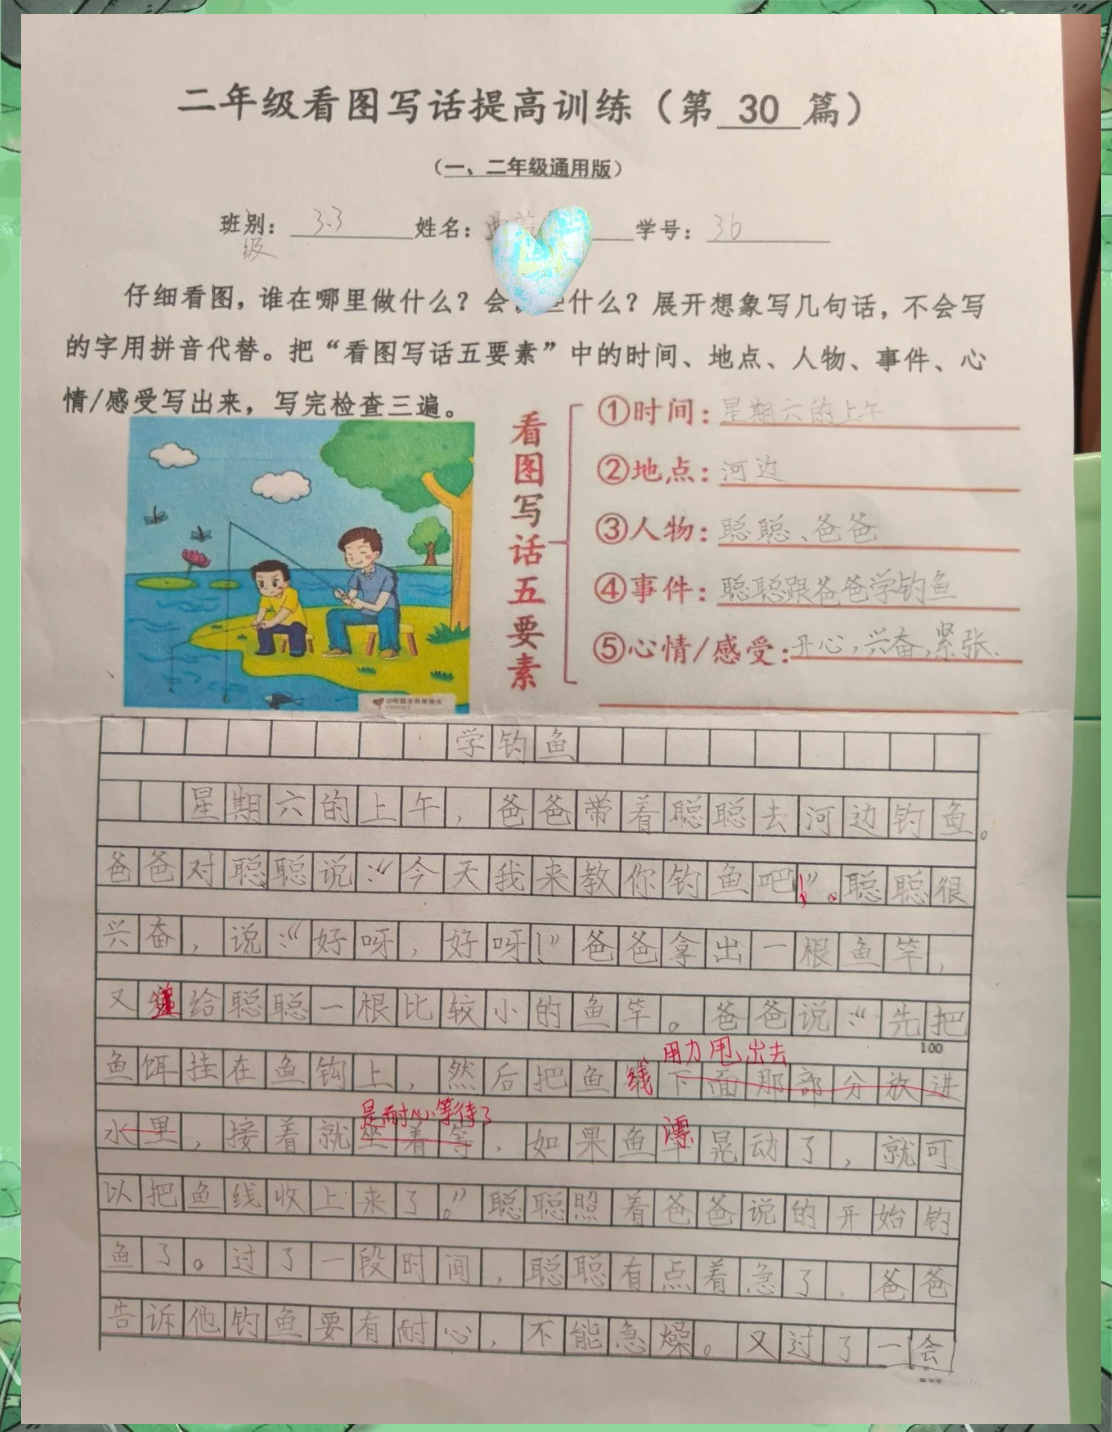 二年级看图写话提高训练（第 30 篇）
（一、二年级通用版）
班别： 3.3 姓名： 学号： 36
级
仔细看图，谁在哪里做什么？会 些什么？展开想象写几句话，不会写
的字用拼音代替。把“看图写话五要素”中的时间、地点、人物、事件、心
情/感受写出来，写完检查三遍。
看图写话五要素
①时间：星期六的上午
②地点：河边
③人物：聪聪、爸爸
④事件：聪聪跟爸爸学钓鱼
⑤心情/感受：开心，兴奋，紧张.
学钓鱼
星期六的上午，爸爸带着聪聪去河边钓鱼。
爸爸对聪聪说：“今天我来教你钓鱼吧！”。聪聪很
兴奋，说：“好呀，好呀！”爸爸拿出一根鱼竿，
又 给聪聪一根比较小的鱼竿。爸爸说：“先把
100
用力甩出去
鱼饵挂在鱼钩上，然后把鱼线下面那部分放进
是耐心等待了
水里，接着就坐着等，如果鱼漂晃动了，就可
以把鱼线收上来了。”聪聪照着爸爸说的开始钓
鱼了。过了一段时间，聪聪有点着急了，爸爸
告诉他钓鱼要有耐心，不能急燥。又过了一会